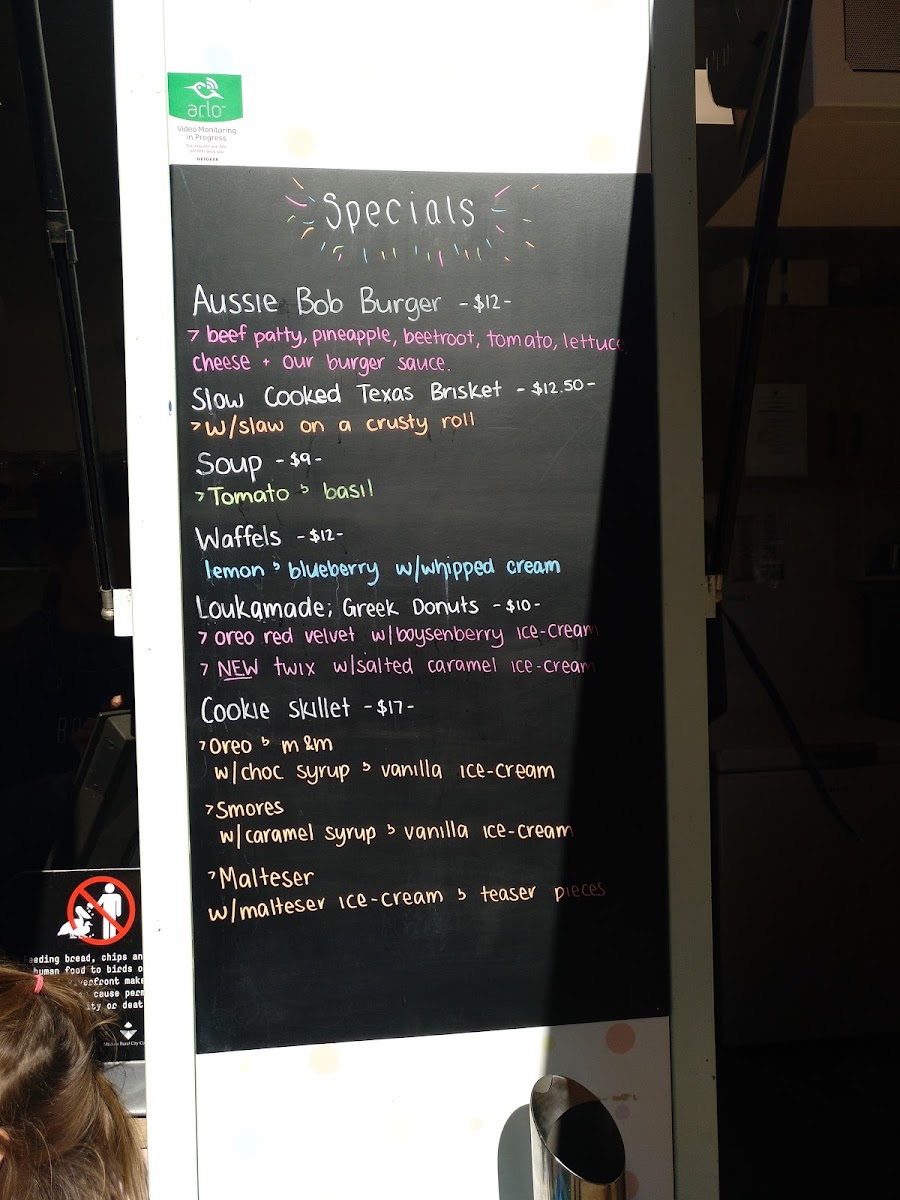 arlo
Video Monitoring
in Progress
NETGEAR
Specials
Aussie Bob Burger - $12 -
> beef patty, pineapple, beetroot, tomato, lettuce
cheese + our burger sauce.
Slow Cooked Texas Brisket - $12.50 -
> w/slaw on a crusty roll
Soup - $9 -
> Tomato & basil
Waffels - $12 -
lemon & blueberry w/whipped cream
Loukamade; Greek Donuts - $10 -
> oreo red velvet w/boysenberry ice-cream
> NEW twix w/salted caramel ice-cream
Cookie skillet - $17 -
> Oreo & m&m
w/choc syrup & vanilla ice-cream
> Smores
w/caramel syrup & vanilla ice-cream
> Malteser
w/malteser ice-cream & teaser pieces
eeding bread, chips an
human food to birds o
erfront mak
cause perm
ity or deat